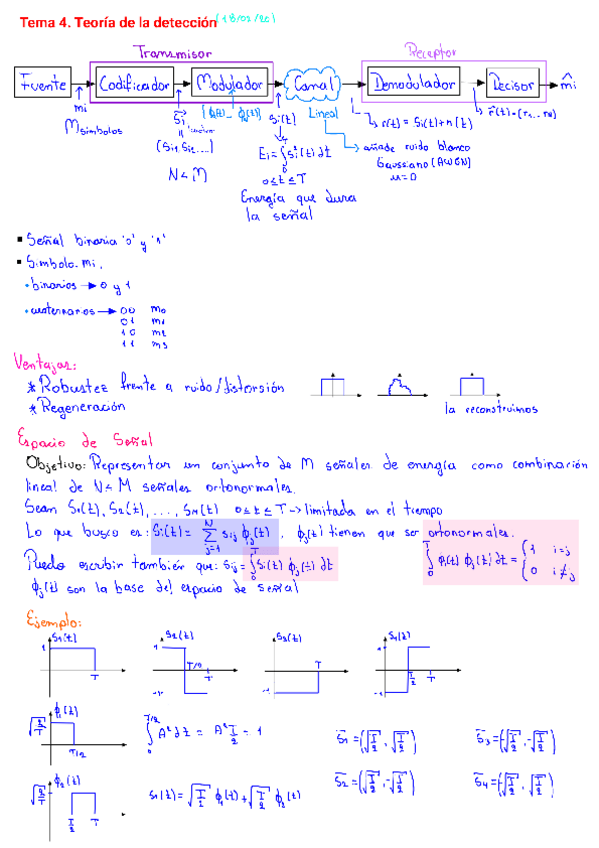 Tema 4. Teoría de la detección (18/02/20)
Transmisor
Receptor
Fuente
Codificador
Modulador
Canal
Demodulador
Decisor
m̂i
mi
M símbolos
Si
(Si1, Si2, ...)
N ≤ M
Si(t)
Lineal
r(t) = Si(t) + n(t)
Ei = ∫₀ᵀ Si²(t) dt
0 ≤ t ≤ T
añade ruido blanco
Gaussiano (AWGN)
μ = 0
Energía que dura
la señal
▪ Señal binaria '0' y '1'
▪ Símbolo mi.
• binarios → 0 y 1
• cuaternarios → 00 m0
01 m1
10 m2
11 m3
Ventajas:
* Robustez frente a ruido/distorsión
* Regeneración
la reconstruimos
Espacio de Señal
Objetivo: Representar un conjunto de M señales de energía como combinación
lineal de N ≤ M señales ortonormales.
Sean S1(t), S2(t), ..., SM(t) 0 ≤ t ≤ T → limitada en el tiempo
Lo que busco es: Si(t) = Σ_{j=1}^{N} sij ϕj(t), ϕj(t) tienen que ser ortonormales.
Puedo escribir también que: Sij = ∫₀ᵀ Si(t) ϕj(t) dt
∫₀ᵀ ϕi(t) ϕj(t) dt = { 1 i=j
0 i≠j
ϕj(t) son la base del espacio de señal
Ejemplo:
S1(t) S2(t) S3(t) S4(t)
1 T
1 T/2 T -1
T -1
1 T/2 T -1
ϕ1(t)
√2/T T/2
∫₀^{T/2} A² dt = A² T/2 = 1
S1 = (√T/2, √T/2) S3 = (-√T/2, -√T/2)
ϕ2(t)
S2 = (√T/2, -√T/2) S4 = (-√T/2, √T/2)
√2/T T/2 T
S1(t) = √T/2 ϕ1(t) + √T/2 ϕ2(t)